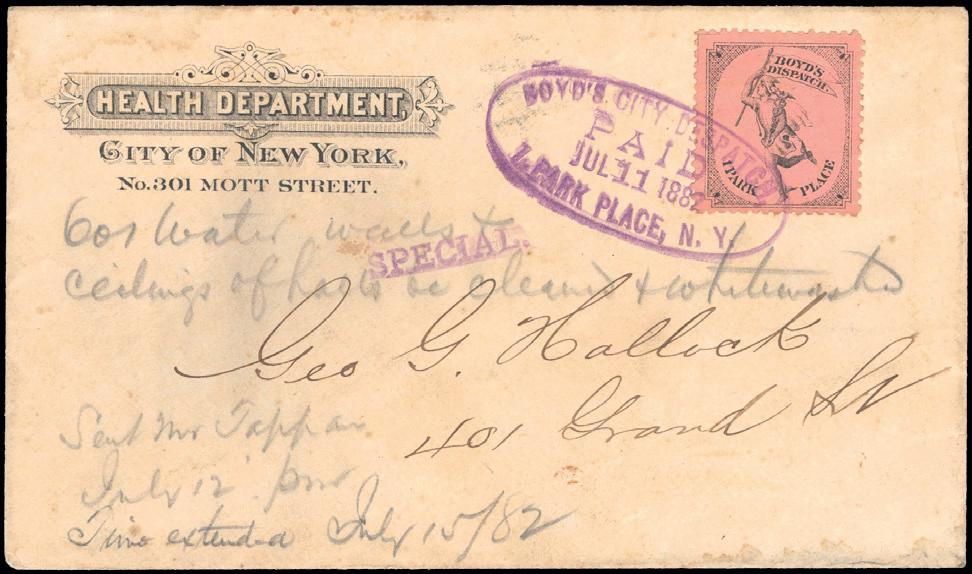 HEALTH DEPARTMENT,
CITY OF NEW YORK,
No. 301 MOTT STREET.
BOYD'S CITY DISPATCH
PAID
JUL 11 1882
1. PARK PLACE, N. Y.
BOYD'S
DISPATCH
1 PARK PLACE
601 Water walls &
SPECIAL.
ceilings of halls be cleaned & whitewashed
Geo G. Hallock
401 Grand St
Sent Mr Tappan
July 12
Time extended July 15/82